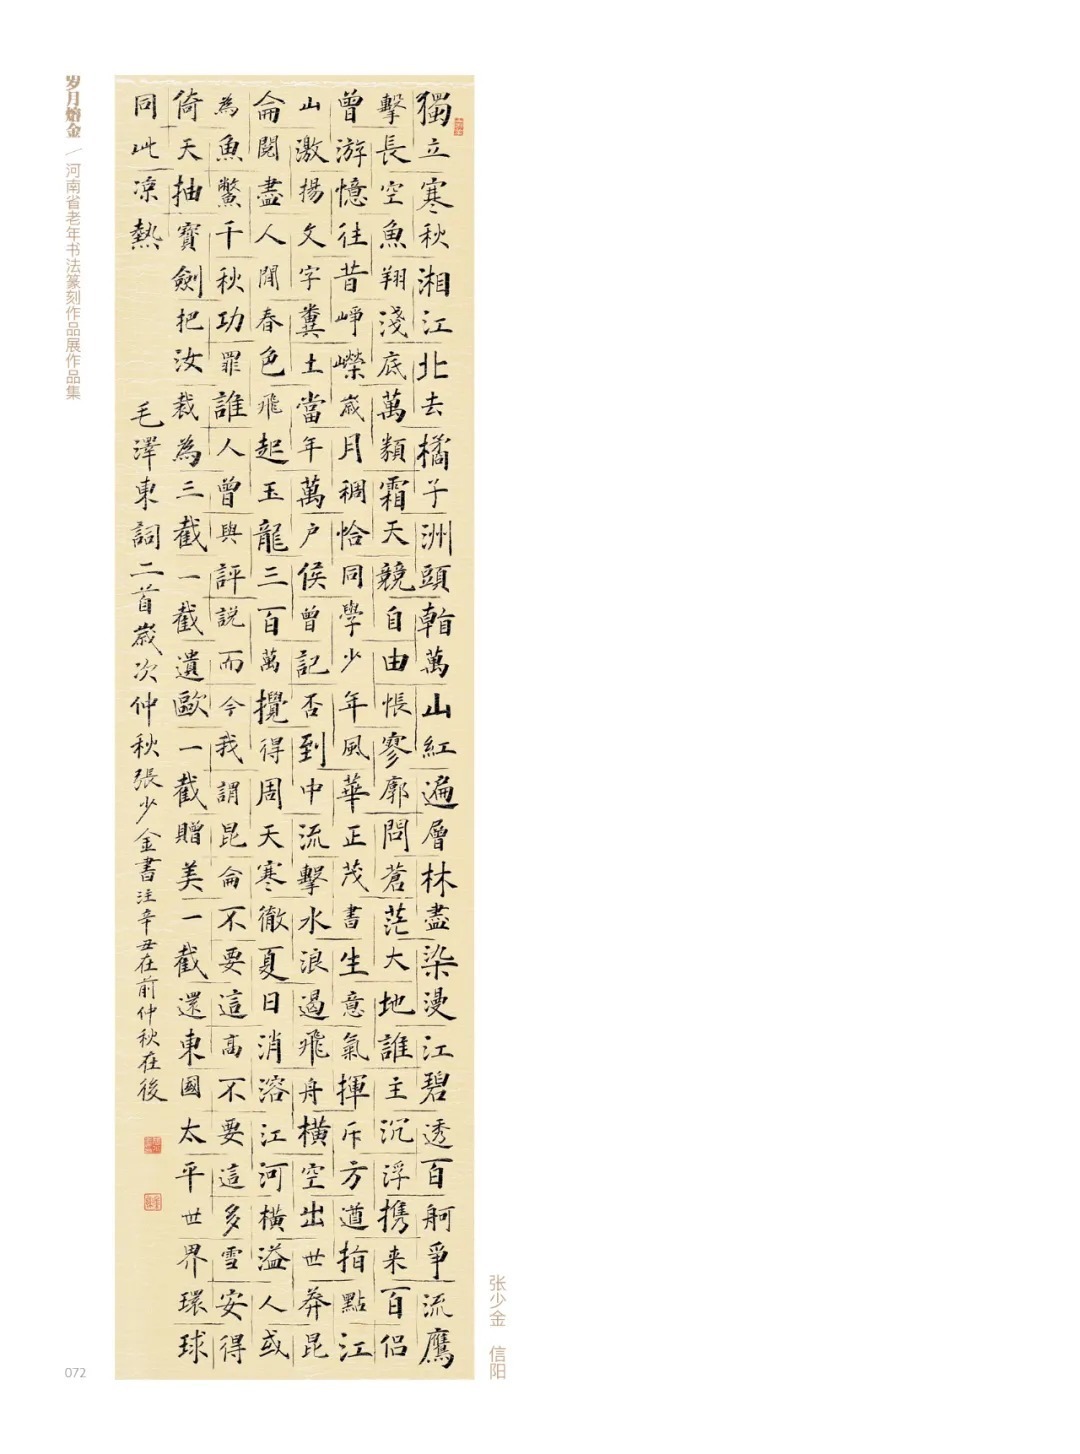 岁月熔金／河南省老年书法篆刻作品展作品集
獨立寒秋湘江北去橘子洲頭看萬山紅遍層林盡染漫江碧透百舸爭流鷹
擊長空魚翔淺底萬類霜天競自由悵寥廓問蒼茫大地誰主沉浮携来百侣
曾游憶往昔崢嶸歲月稠恰同學少年風華正茂書生意氣揮斥方遒指點江
山激揚文字糞土當年萬户侯曾記否到中流擊水浪遏飛舟橫空出世莽昆
侖閱盡人間春色飛起玉龍三百萬攪得周天寒徹夏日消溶江河橫溢人或
為魚鱉千秋功罪誰人曾與評說而今我謂昆侖不要這高不要這多雪安得
倚天抽寶劍把汝裁為三截一截遺歐一截贈美一截還東國太平世界環球
同此凉熱
毛澤東詞二首歲次仲秋張少金書注辛丑在前仲秋在後
张少金 信阳
072